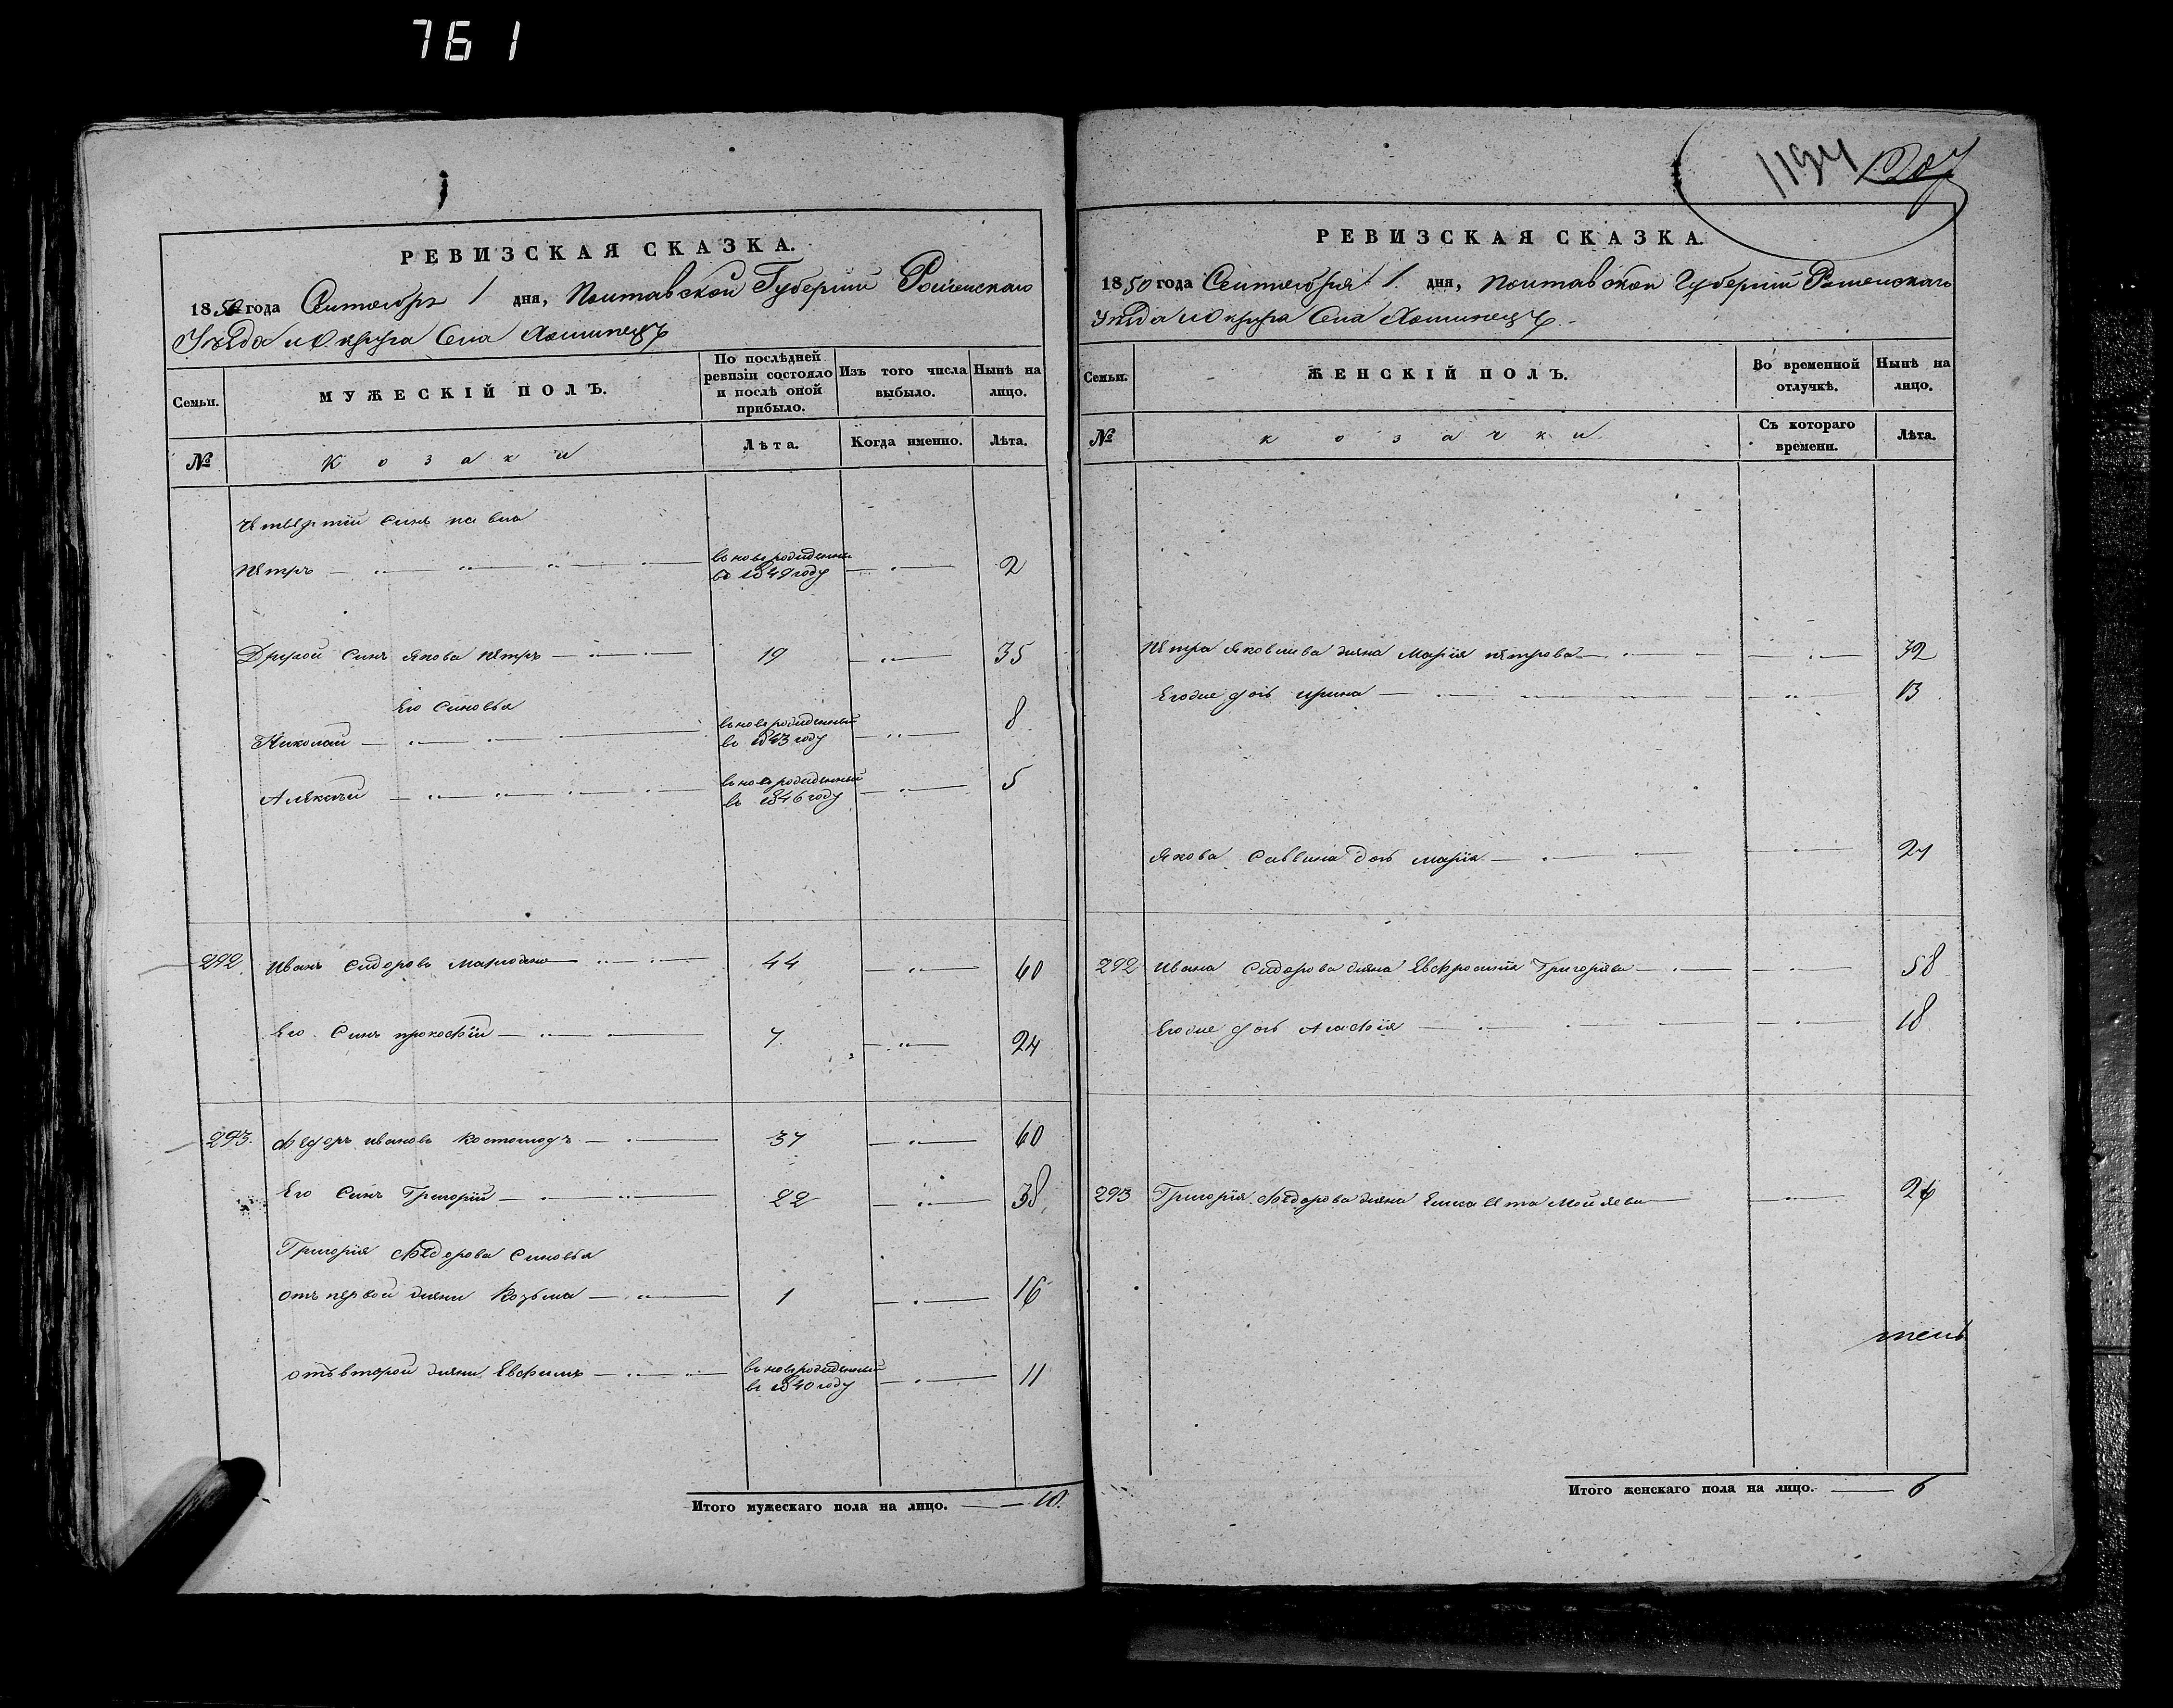 761
1194 1207
РЕВИЗСКАЯ СКАЗКА.
1850 года Сентября 1 дня, Полтавской Губернии Роменскаго
Уѣзда и Округа Села
МУЖЕСКІЙ ПОЛЪ.
Семьи.
По послѣдней ревизіи состояло и послѣ оной прибыло.
Изъ того числа выбыло.
Нынѣ на лицо.
№
Козаки
Лѣта.
Когда именно.
Лѣта.
Четвертий Синъ
Петръ вновърожденний в 1849 году 2
Другой Синъ Якова Петръ 19 35
Его Синовья
Николай вновърожденний в 1843 году 8
Алексѣй вновърожденний в 1846 году 5
292. Иванъ Сидоровъ 44 60
Его Синъ прокофій 7 24
293. Федоръ Ивановъ 37 60
Его Синъ Григорій 22 38
Григорія Федорова Синовья
отъ первой жени Козьма 1 16
отъ второй жени Евфимъ вновърожденний в 1840 году 11
Итого мужескаго пола на лицо. 10.
РЕВИЗСКАЯ СКАЗКА.
1850 года Сентября 1 дня, Полтавской Губерніи Роменскаго
Уѣзда и Округа Села
Семьи.
ЖЕНСКІЙ ПОЛЪ.
Во временной отлучкѣ.
Нынѣ на лицо.
№
козачки
Съ котораго времени.
Лѣта.
Петра Яковлева жена Марія петрова 32
Егоже дочь ирина 13
Якова дочь марія 27
292 Ивана Сидорова жена Евфросинія Григоріева 58
Егоже дочь Агафія 18
293 Григорія Федорова жена Елисавета 26
Итого женскаго пола на лицо. 6